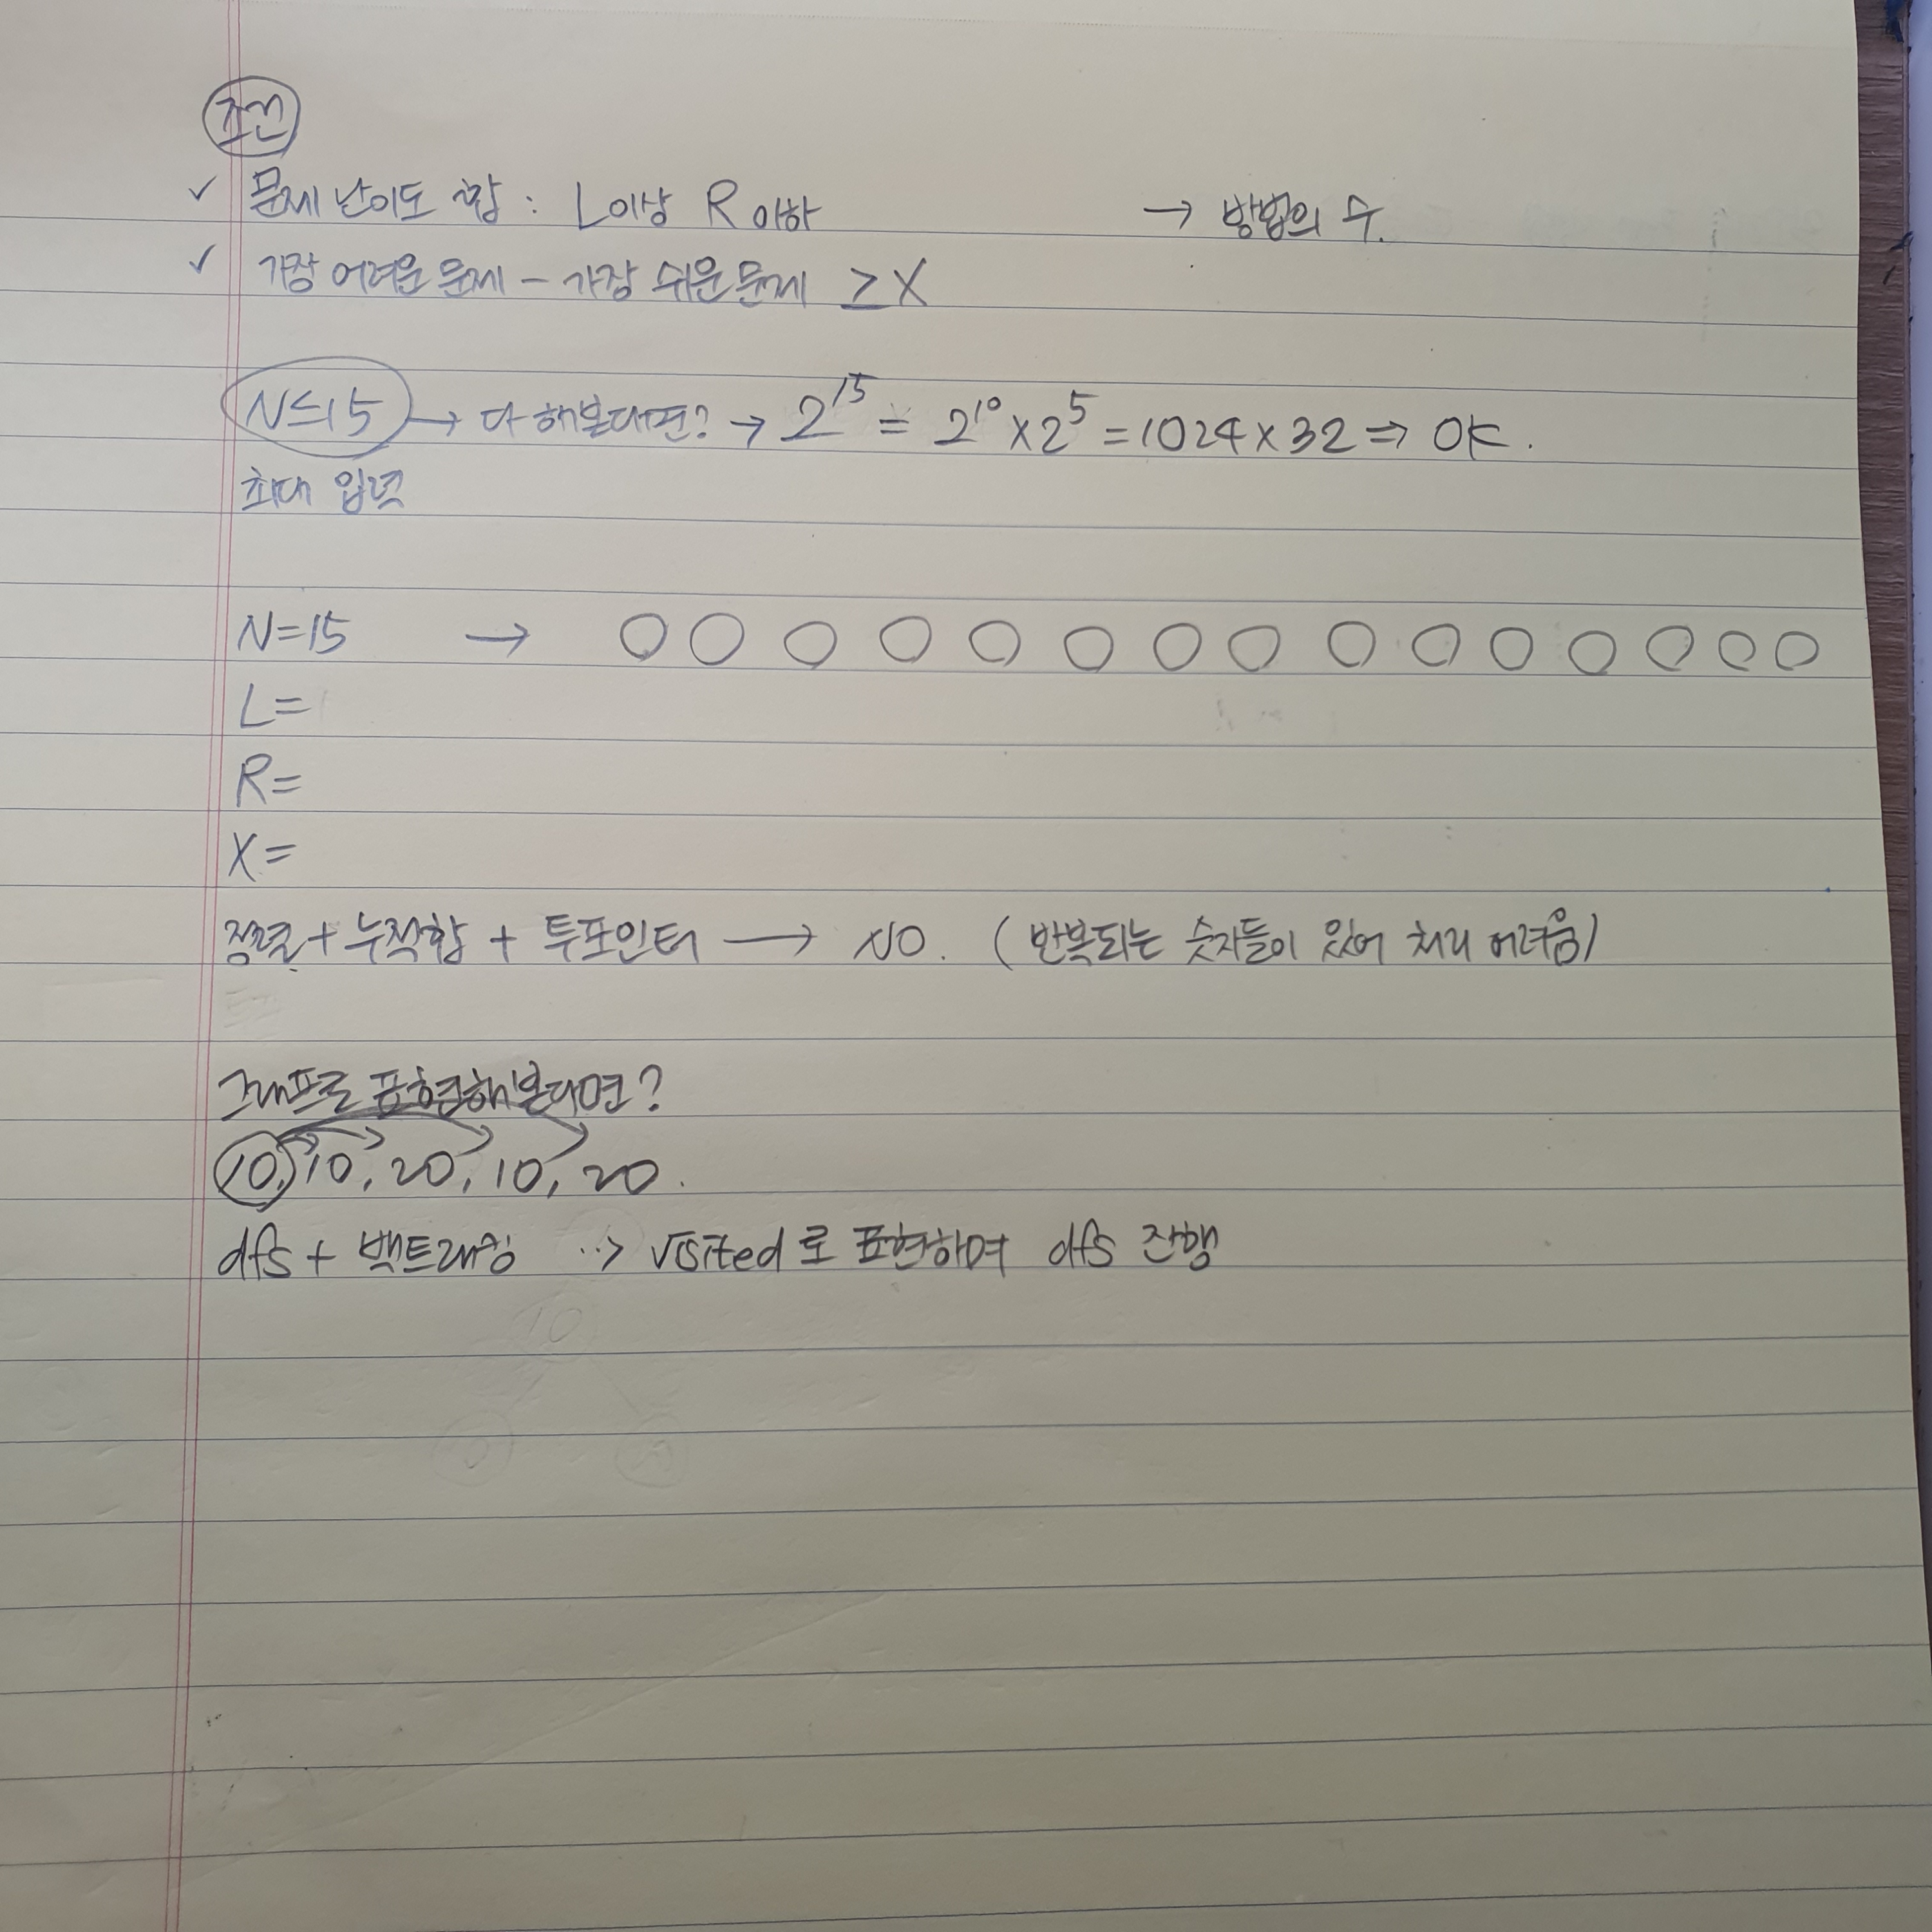 조건
✓ 문제 난이도 합 : L이상 R이하 → 방법의 수.
✓ 가장 어려운 문제 - 가장 쉬운 문제 ≥ X
N≤15 → 다 해본다면? → 2^15 = 2^10 × 2^5 = 1024 × 32 ⇒ OK.
최대 입력
N=15 → ○ ○ ○ ○ ○ ○ ○ ○ ○ ○ ○ ○ ○ ○ ○
L=
R=
X=
정렬 + 누적합 + 투포인터 → NO. (반복되는 숫자들이 있어 처리 어려움)
그래프로 표현해본다면?
10, 10, 20, 10, 20.
dfs + 백트래킹 ··> visited로 표현하며 dfs 진행